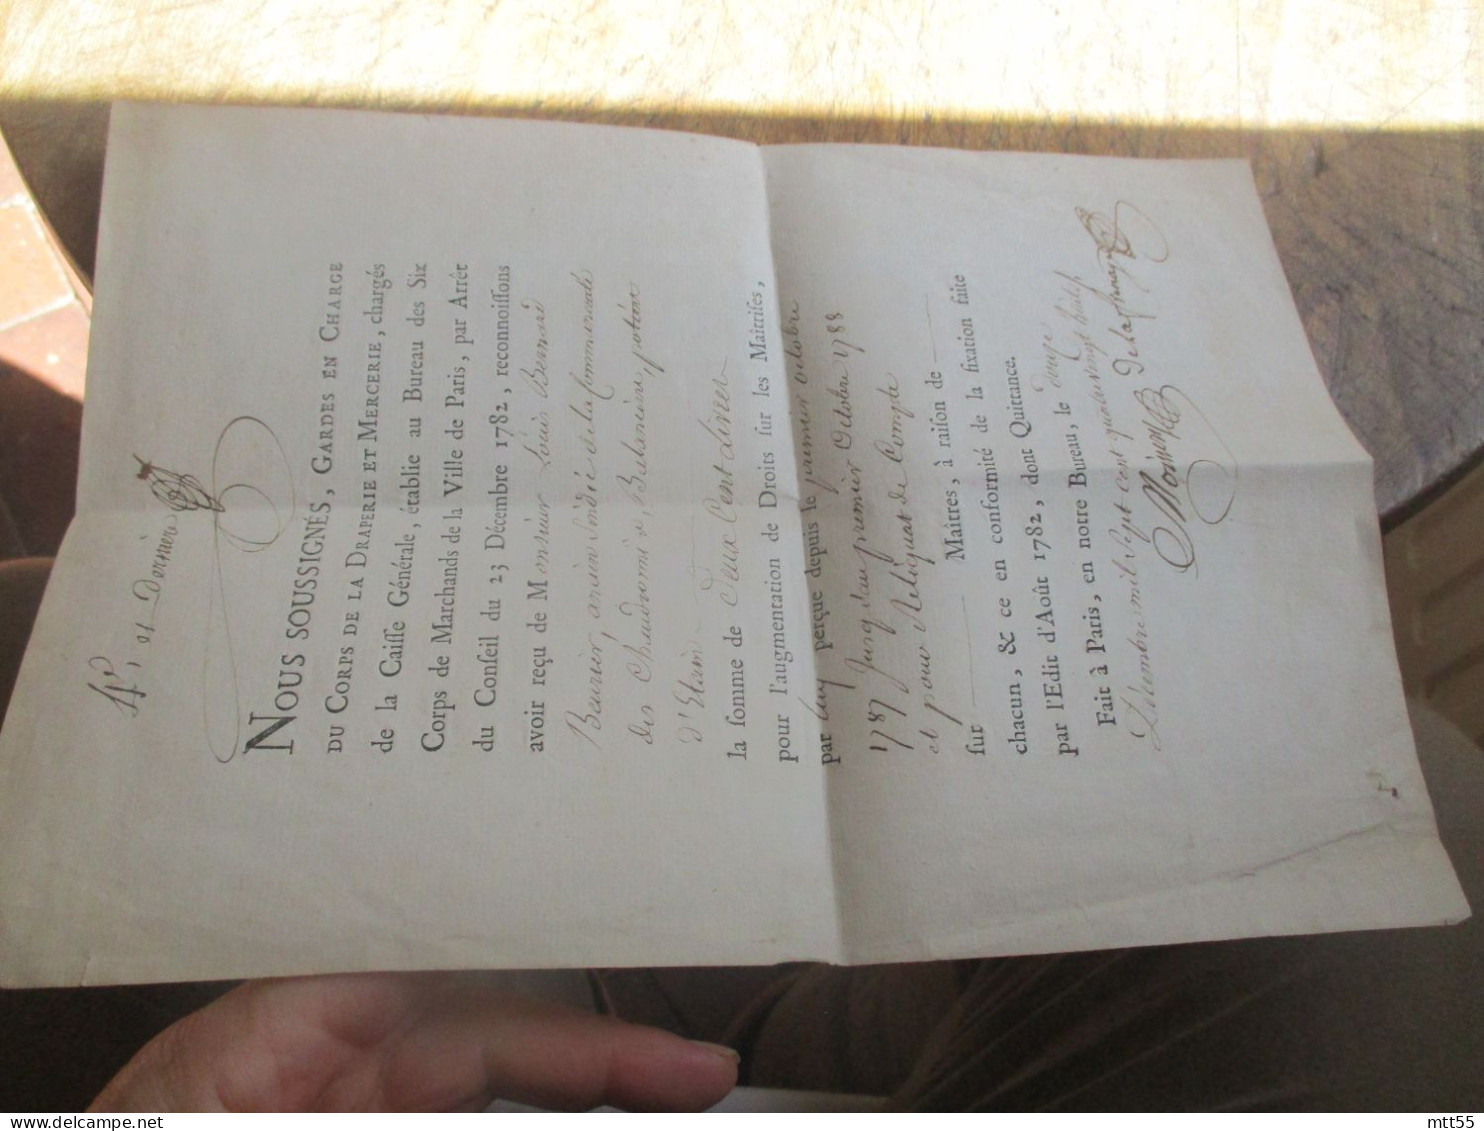 Nº, 21 Dernière
NOUS SOUSSIGNÉS, GARDES EN CHARGE
DU CORPS DE LA DRAPERIE ET MERCERIE, chargés
de la Caiſſe Générale, établie au Bureau des Six
Corps de Marchands de la Ville de Paris, par Arrêt
du Conſeil du 23 Décembre 1782, reconnoiſſons
avoir reçu de Monsieur Louis Bernard
Beurier, ancien Sindic de la Communauté
des Chaudronniers, Balanciers, potiers
d'Etain
la ſomme de Deux Cent Livres
pour l'augmentation de Droits ſur les Maîtriſes,
par luy perçue depuis le premier octobre
1787 Jusqu'au premier Octobre 1788
et pour Reliquat de Compte
ſur Maîtres, à raiſon de
chacun, & ce en conformité de la fixation faite
par l'Edit d'Août 1782, dont Quittance.
Fait à Paris, en notre Bureau, le douze
Décembre mil Sept Cent quatre vingt huit
mtt55
delcampe.net